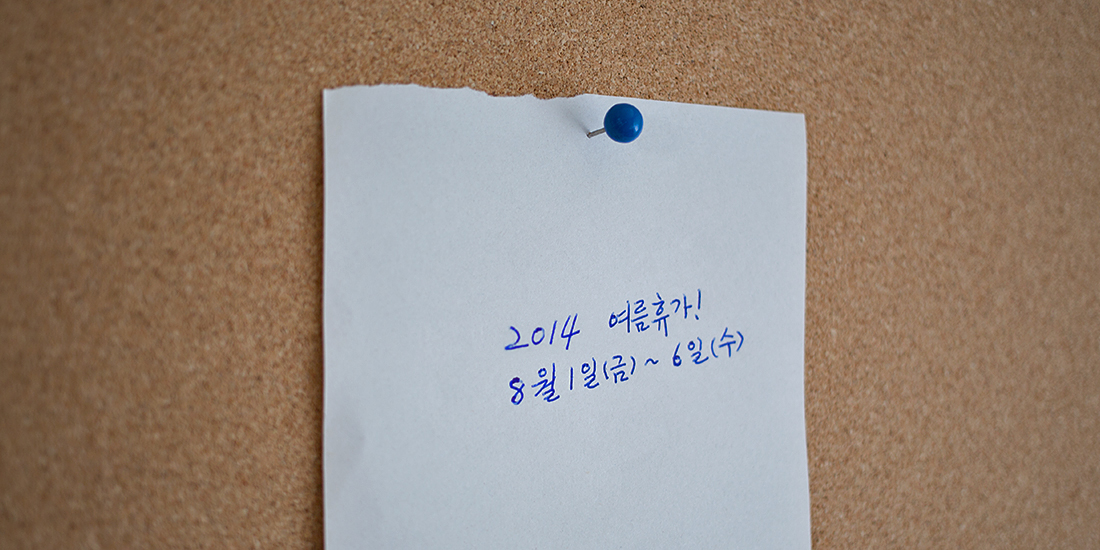 2014 여름휴가!
8월 1일(금) ~ 6일(수)